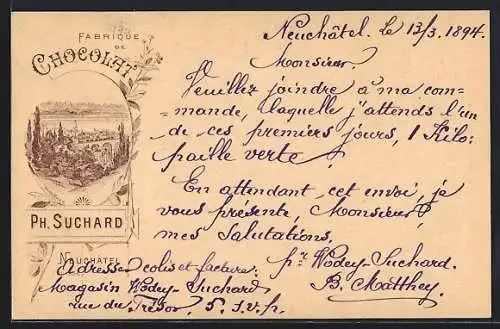 FABRIQUE
DE
CHOCOLAT
PH. SUCHARD
NEUCHÂTEL
Neuchâtel. Le 13/3. 1894.
Monsieur.
Veuillez joindre à ma com-
=mande, laquelle j'attends l'un
de ces premiers jours, 1 Kilo:
paille verte.
En attendant cet envoi, je
vous présente, Monsieur,
mes salutations.
pr Wodey-Suchard.
B. Matthey.
Adresser colis et facture:
Magasin Wodey-Suchard
rue du Trésor. 5. s.v.p.